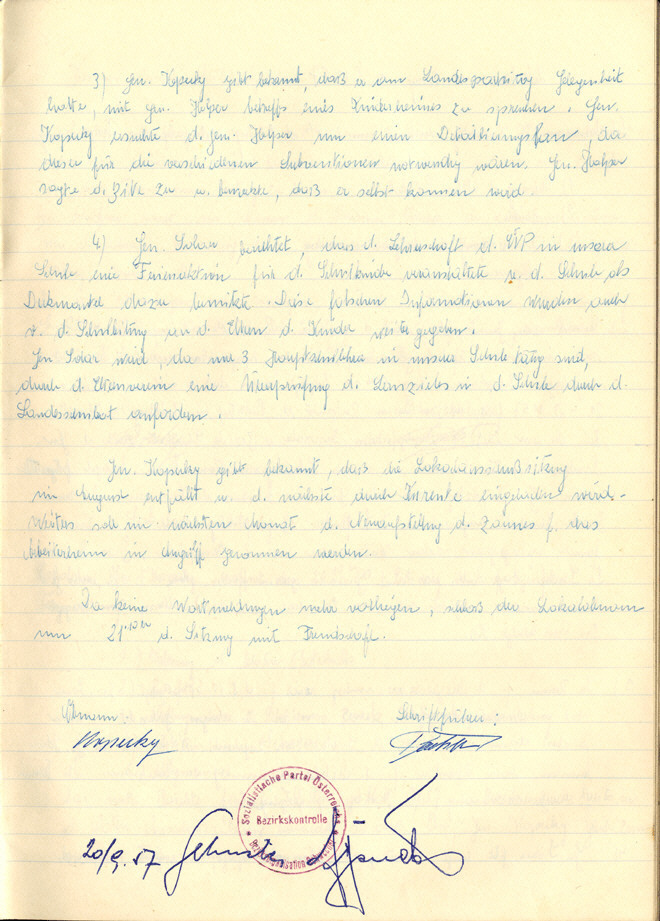 3) Gen. Kopecky gibt bekannt, daß er am Landesparteitag Gelegenheit
hatte, mit Gen. betreffs eines Kinderheimes zu sprechen. Gen.
Kopecky ersuchte d. Gen. um einen, da
dieser für die verschiedenen Subventionen notwendig wären. Gen.
sagte d. zu u. bemerkte, daß er selbst kommen wird.
4.) Gen. Solar berichtet, dass d. Lehrerschaft d. ÖVP in unserer
Schule eine Ferienaktion für d. Schulkinder veranstaltete u. d. Schule als
dazu benützte. Diese falschen Informationen wurden auch
v. d. Schulleitung an d. Eltern d. Kinder weiter gegeben.
Gen. Solar wird, da nur 3 in unserer Schule tätig sind,
durch d. Elternverein eine Überprüfung d. Lernzieles in d. Schule durch d.
Landesschulrat anfordern.
Gen. Kopecky gibt bekannt, daß die Lokalausschußsitzung
im August entfällt u. d. nächste durch Kurrende eingeladen wird.
Weiters soll im nächsten Monat d. Neuaufstellung d. Zaunes f. das
Arbeiterheim in Angriff genommen werden.
Da keine Wortmeldungen mehr vorliegen, schloß der Lokalobmann
um 21 d. Sitzung mit Freundschaft.
Obmann: Schriftführer:
Kopecky
Sozialistische Partei Österreichs
Bezirkskontrolle
20/9. 57